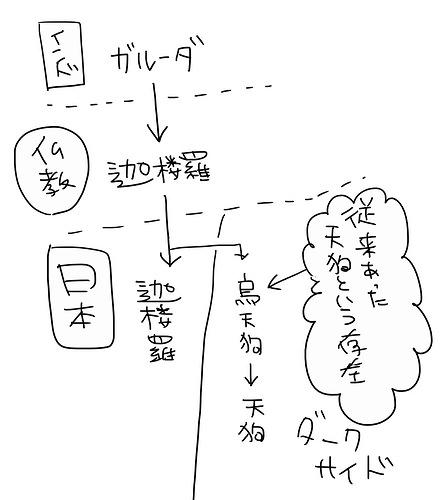 インド
ガルーダ
仏教
迦楼羅
日本
迦楼羅
烏天狗
天狗
従来あった
天狗という存在
ダーク
サイド